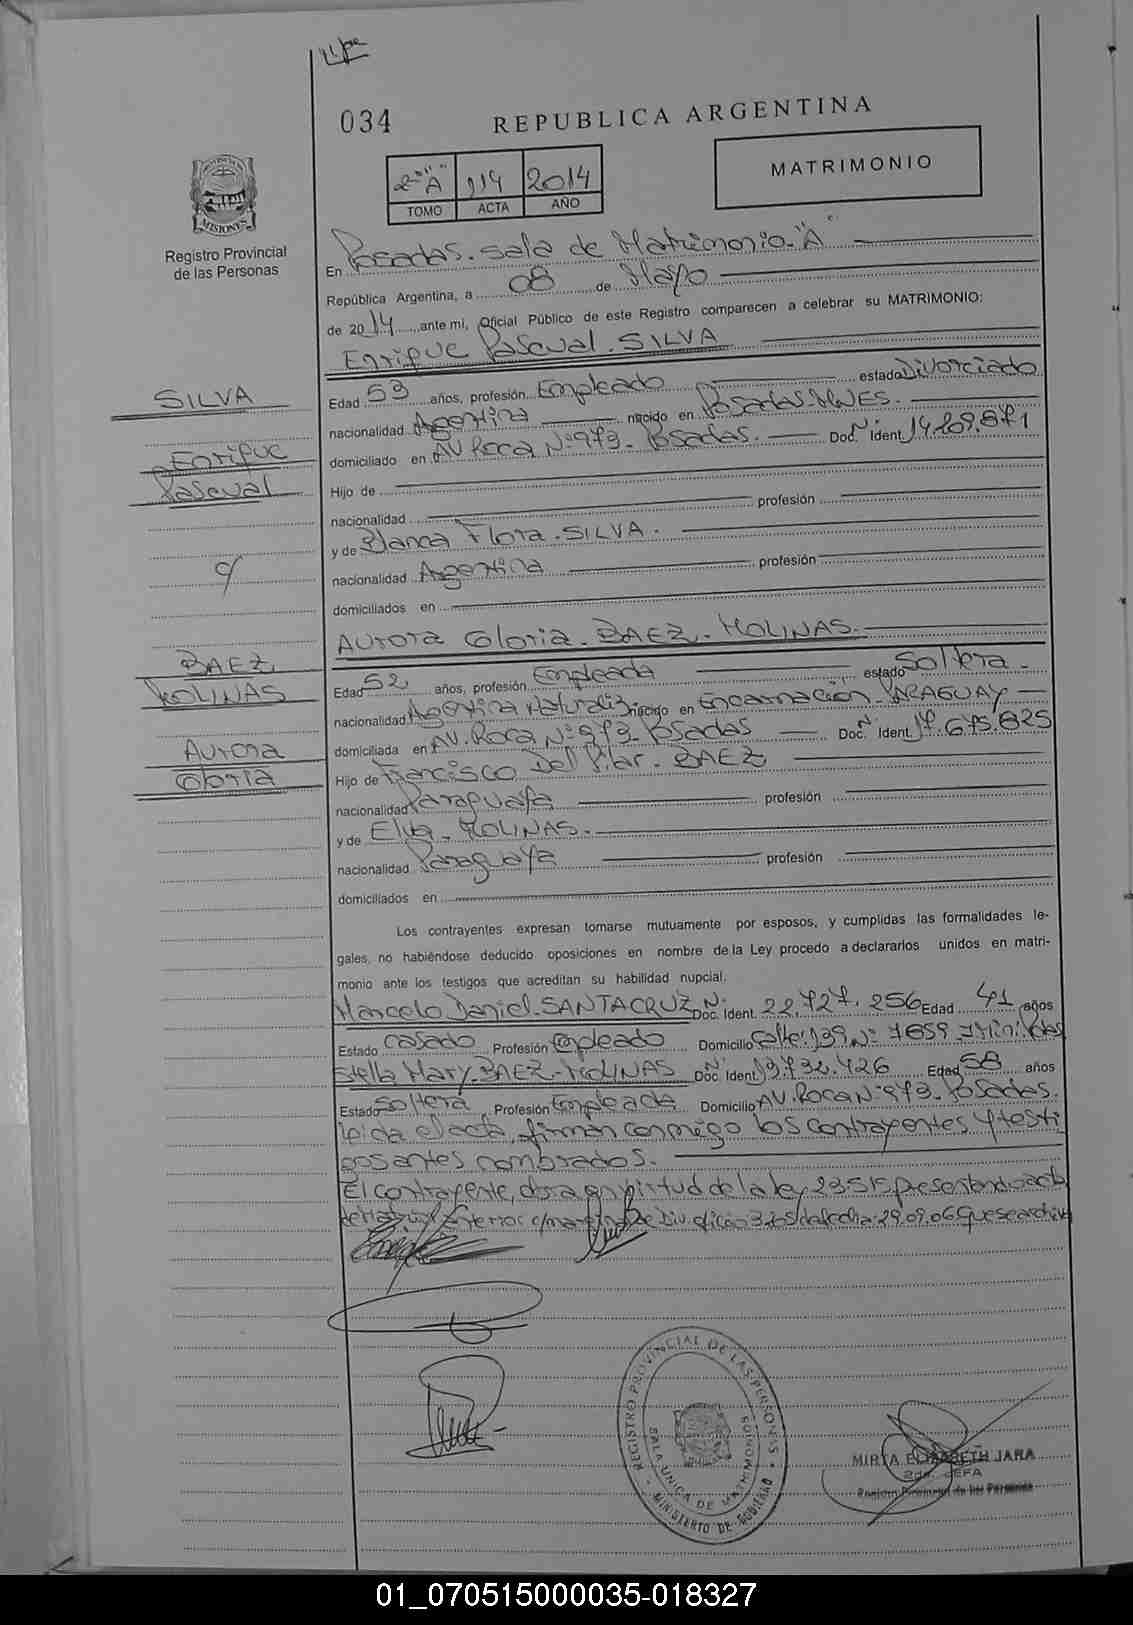 034
REPUBLICA ARGENTINA
2º "A" 114 2014
TOMO ACTA AÑO
MATRIMONIO
PROVINCIA
MISIONES
Registro Provincial
de las Personas
En Posadas. sala de Matrimonio "A"
República Argentina, a 08 de Mayo
de 2014 ante mi, Oficial Público de este Registro comparecen a celebrar su MATRIMONIO:
Enrique Pascual. SILVA
SILVA
Enrique
Pascual
c/
BAEZ
MOLINAS
Aurora
Gloria
Edad 53 años, profesión Empleado estado Divorciado
nacionalidad Argentina nacido en Posadas. MNES.
domiciliado en AV. Roca Nº 973. Posadas. Doc. Nº Ident 14.209.871
Hijo de
nacionalidad profesión
y de Blanca Flora. SILVA.
nacionalidad Argentina profesión
domiciliados en
Aurora Gloria. BAEZ. MOLINAS.
Edad 52 años, profesión Empleada estado Soltera.
nacionalidad Argentina Naturaliz. nacido en Encarnación. PARAGUAY
domiciliada en AV. Roca Nº 973. Posadas Doc. Nº Ident. 17.675.825
Hijo de Francisco Del Pilar. BAEZ
nacionalidad Paraguaya profesión
y de Elva. MOLINAS.
nacionalidad Paraguaya profesión
domiciliados en
Los contrayentes expresan tomarse mutuamente por esposos, y cumplidas las formalidades le-
gales, no habiéndose deducido oposiciones en nombre de la Ley procedo a declararlos unidos en matri-
monio ante los testigos que acreditan su habilidad nupcial.
Marcelo Daniel. SANTACRUZ Doc. Nº Ident. 22.727.256 Edad 41 años
Estado casado Profesión Empleado Domicilio Calle: 139 Nº 7659
Stella Mary. BAEZ. MOLINAS Doc. Nº Ident. 13.732.426 Edad 58 años
Estado Soltera Profesión Empleada Domicilio AV. Roca Nº 973. Posadas.
leida el acta, firman conmigo los contrayentes y testi
gos antes nombrados.
El contrayente, obra en virtud de la ley 23515, presentando acta
de anterior c/marginal de Div. oficio la fecha: 29.09.06 Que se archiva
REGISTRO PROVINCIAL DE LAS PERSONAS
SALA UNICA DE MATRIMONIOS
MINISTERIO DE GOBIERNO
MIRTA ELISABETH JARA
2da. JEFA
Registro Provincial de las Personas
01_070515000035-018327